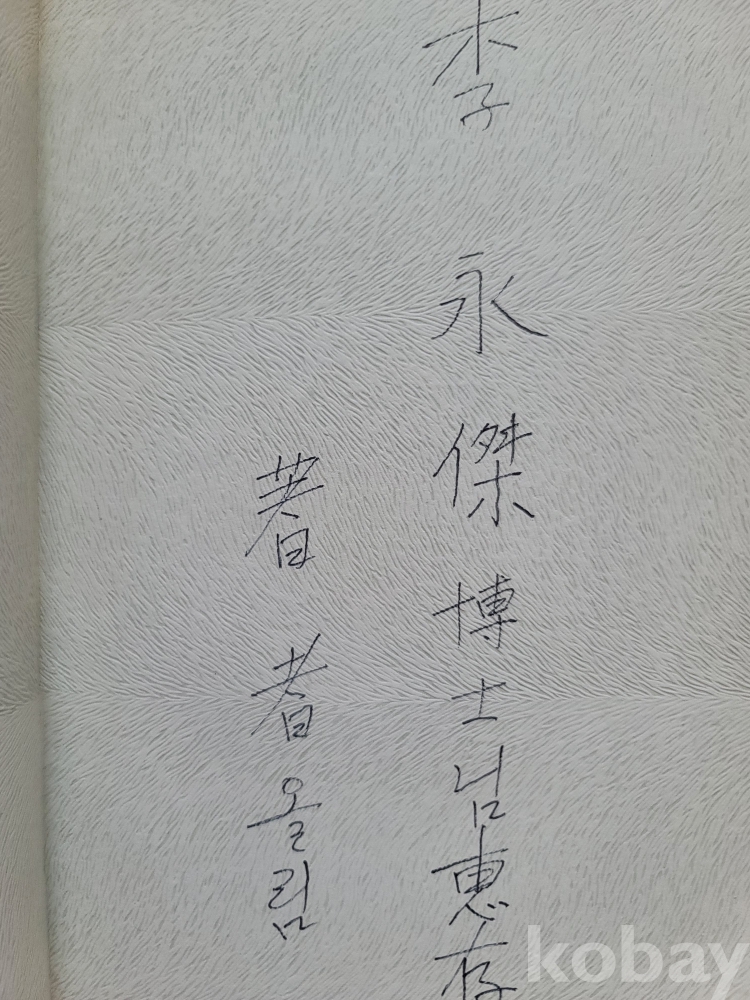 李永傑博士님惠存
著者올림
kobay